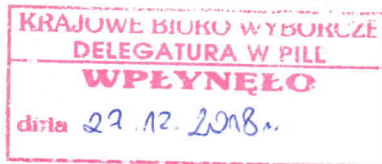 KRAJOWE BIURO WYBORCZE
DELEGATURA W PILE
WPŁYNĘŁO
dnia 27.12.2018 r.